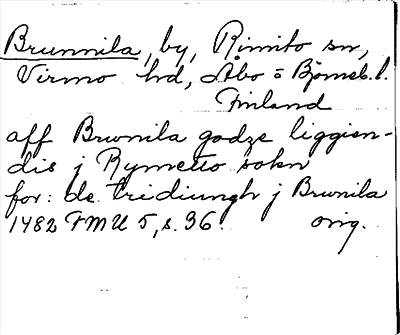 Brunnila, by, Rimito sn,
Virmo hd, Åbo o Björneb. l.
Finland
aff Brwnila godze liggien-
dis j Rymetto sokn
for: de tridiungh j Brunila
1482 FMU 5, s. 36. orig.